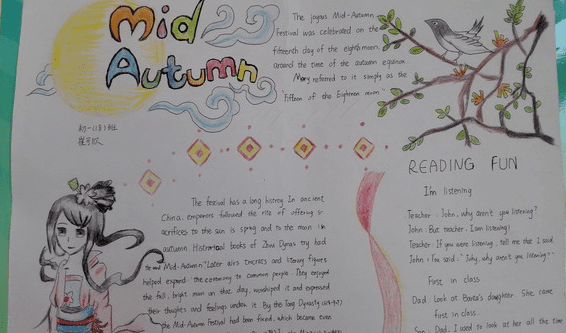 Mid
Autumn
初一(3)班
The joyous Mid-Autumn
Festival was celebrated on the
fifteenth day of the eighth moon,
around the time of the autumn equinox.
Many referred to it simply as the
"Fifteen of the Eighteen moon."
The festival has a long history. In ancient
China, emperors followed the rite of offering
sacrifices to the sun is spring and to the moon in
autumn. Historical books of Zhou Dynas try had
the word Mid-Autumn." Later and literary figures
helped expand the ceremony to common people. They enjoyed
the full, bright moon on that day, worshiped it and expressed
their thoughts and feelings under it. By the Tang Dynasty
the Mid-Autumn Festival had been fixed, which became even
READING FUN
I'm listening
Teacher: John, why aren't you listening?
John: But teacher, I am listening!
Teacher: If you were listening, tell me that I said.
John: You said: "John, why aren't you listening?"
First in class
Dad: Look at daughter. She came
first in class.
Son: Dad, I used to look at her all the time